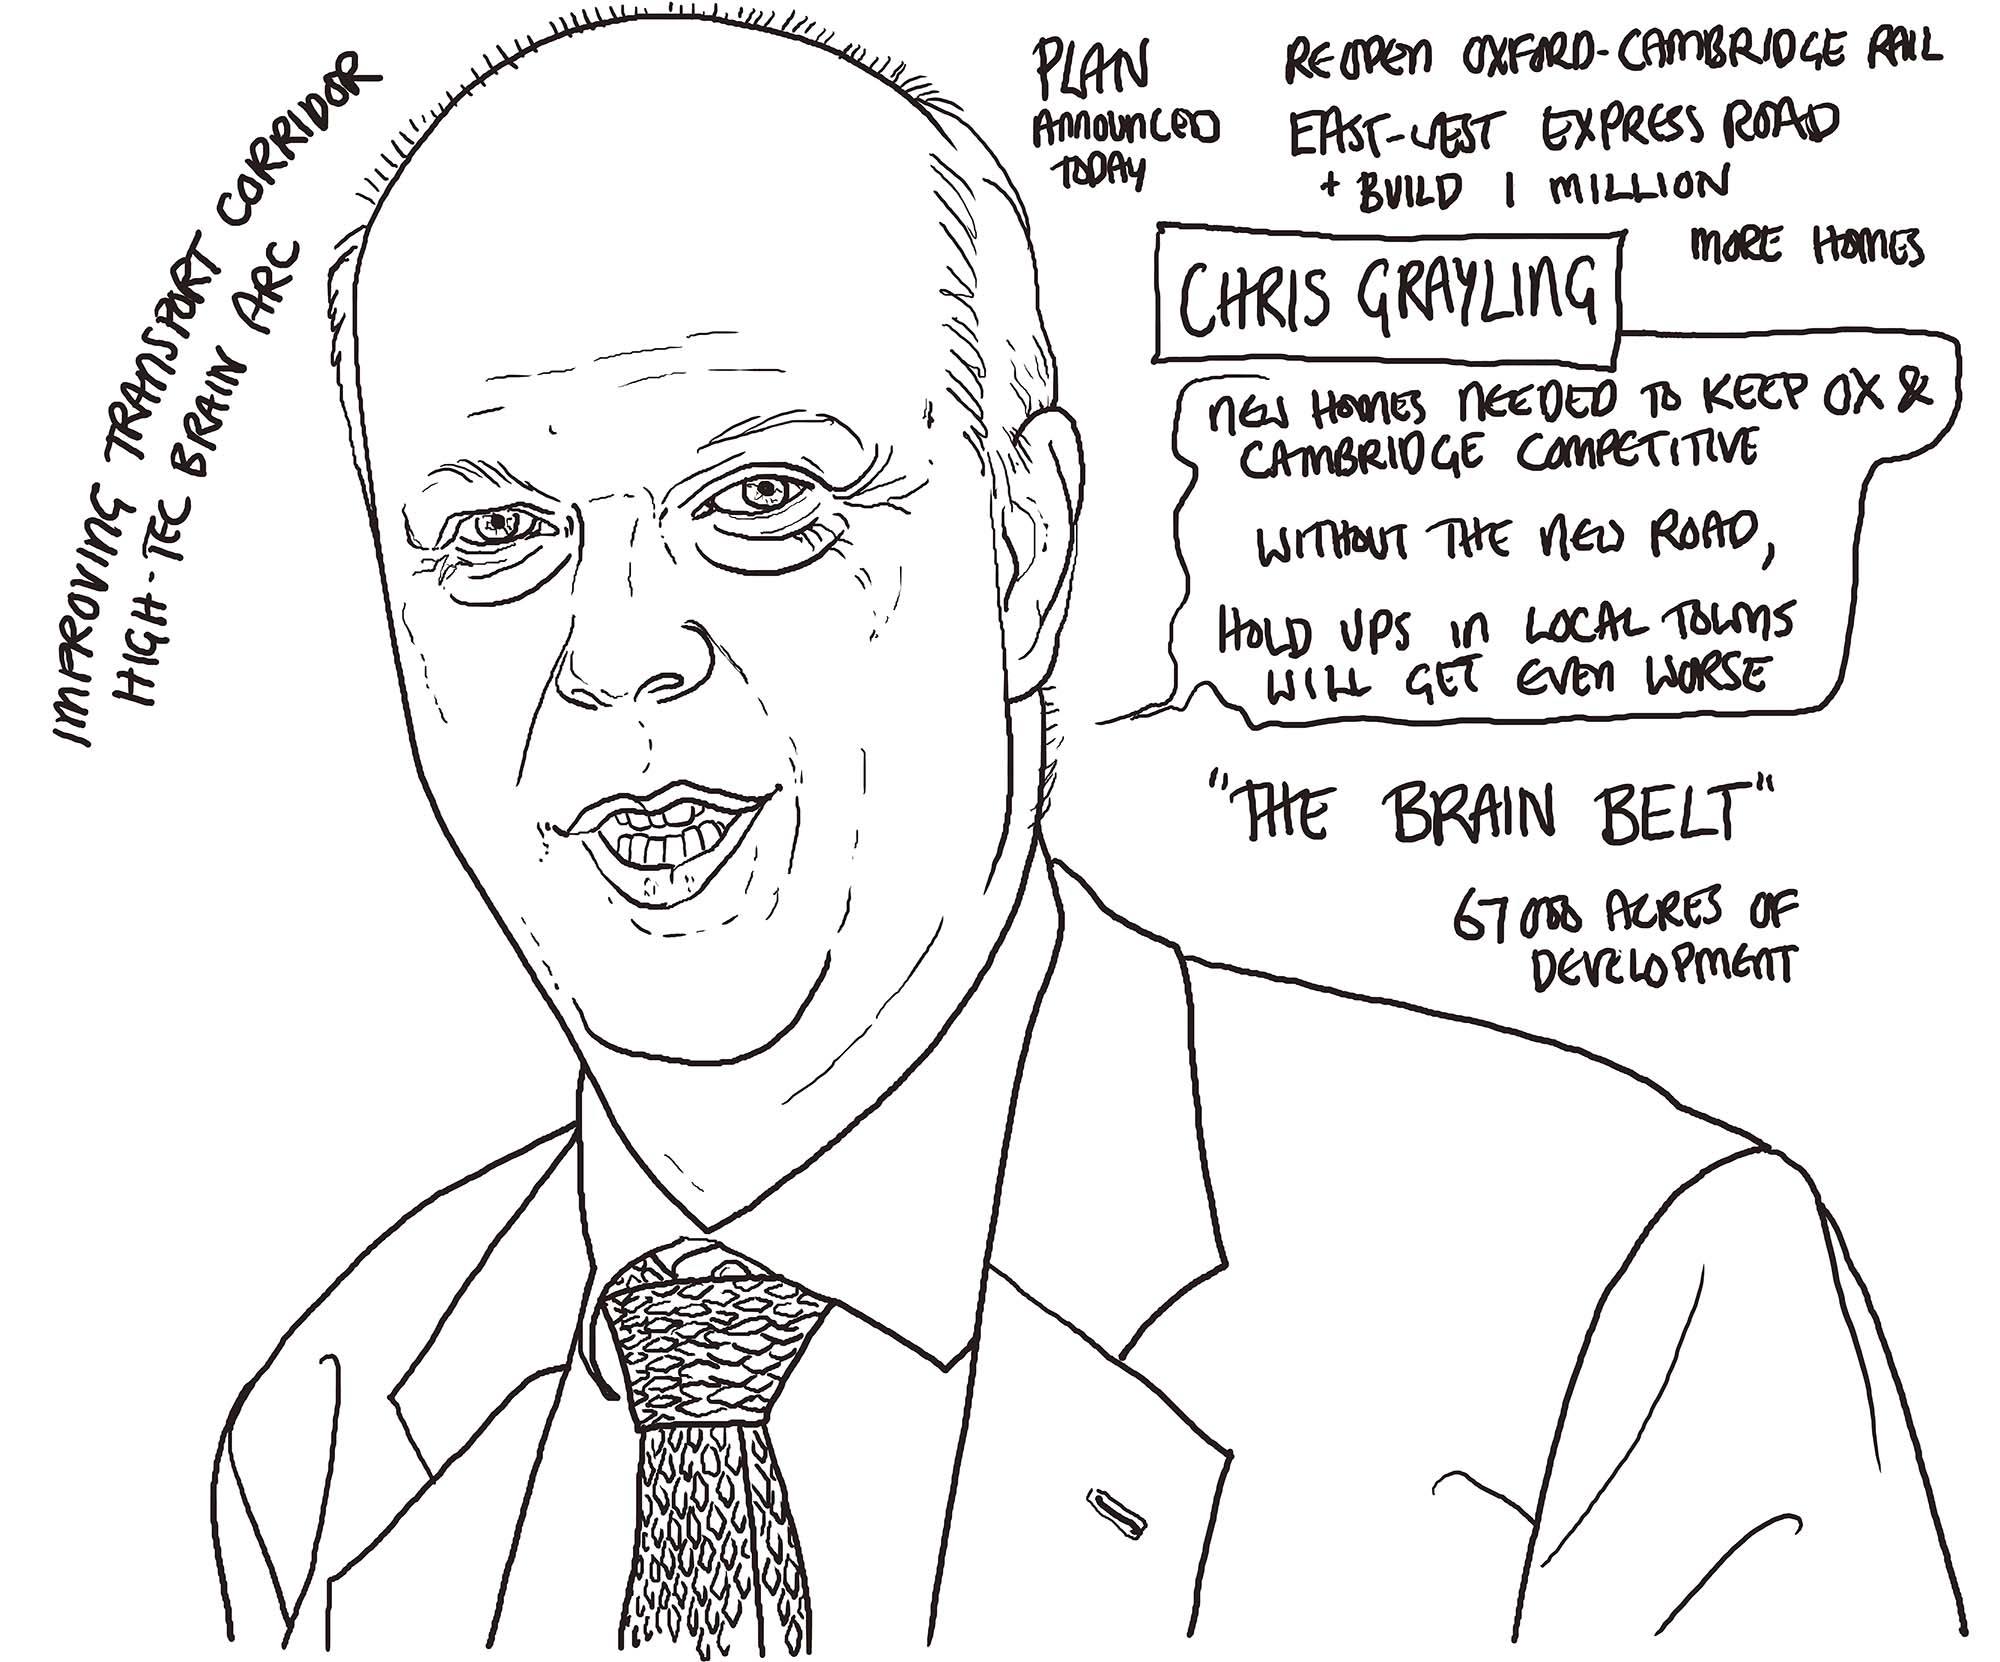 IMPROVING TRANSPORT CORRIDOR
HIGH-TEC BRAIN ARC
PLAN
ANNOUNCED
TODAY
REOPEN OXFORD-CAMBRIDGE RAIL
EAST-WEST EXPRESS ROAD
+ BUILD 1 MILLION
MORE HOMES
CHRIS GRAYLING
NEW HOMES NEEDED TO KEEP OX &
CAMBRIDGE COMPETITIVE
WITHOUT THE NEW ROAD,
HOLD UPS IN LOCAL TOWNS
WILL GET EVEN WORSE
"THE BRAIN BELT"
67000 ACRES OF
DEVELOPMENT